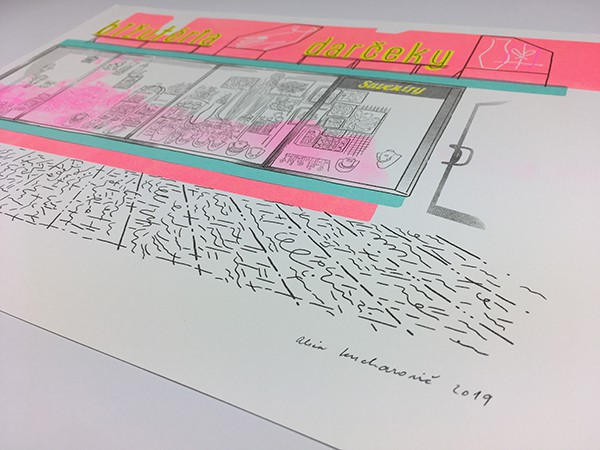 bižutéria darčeky
Suveníry
kucharovič 2019